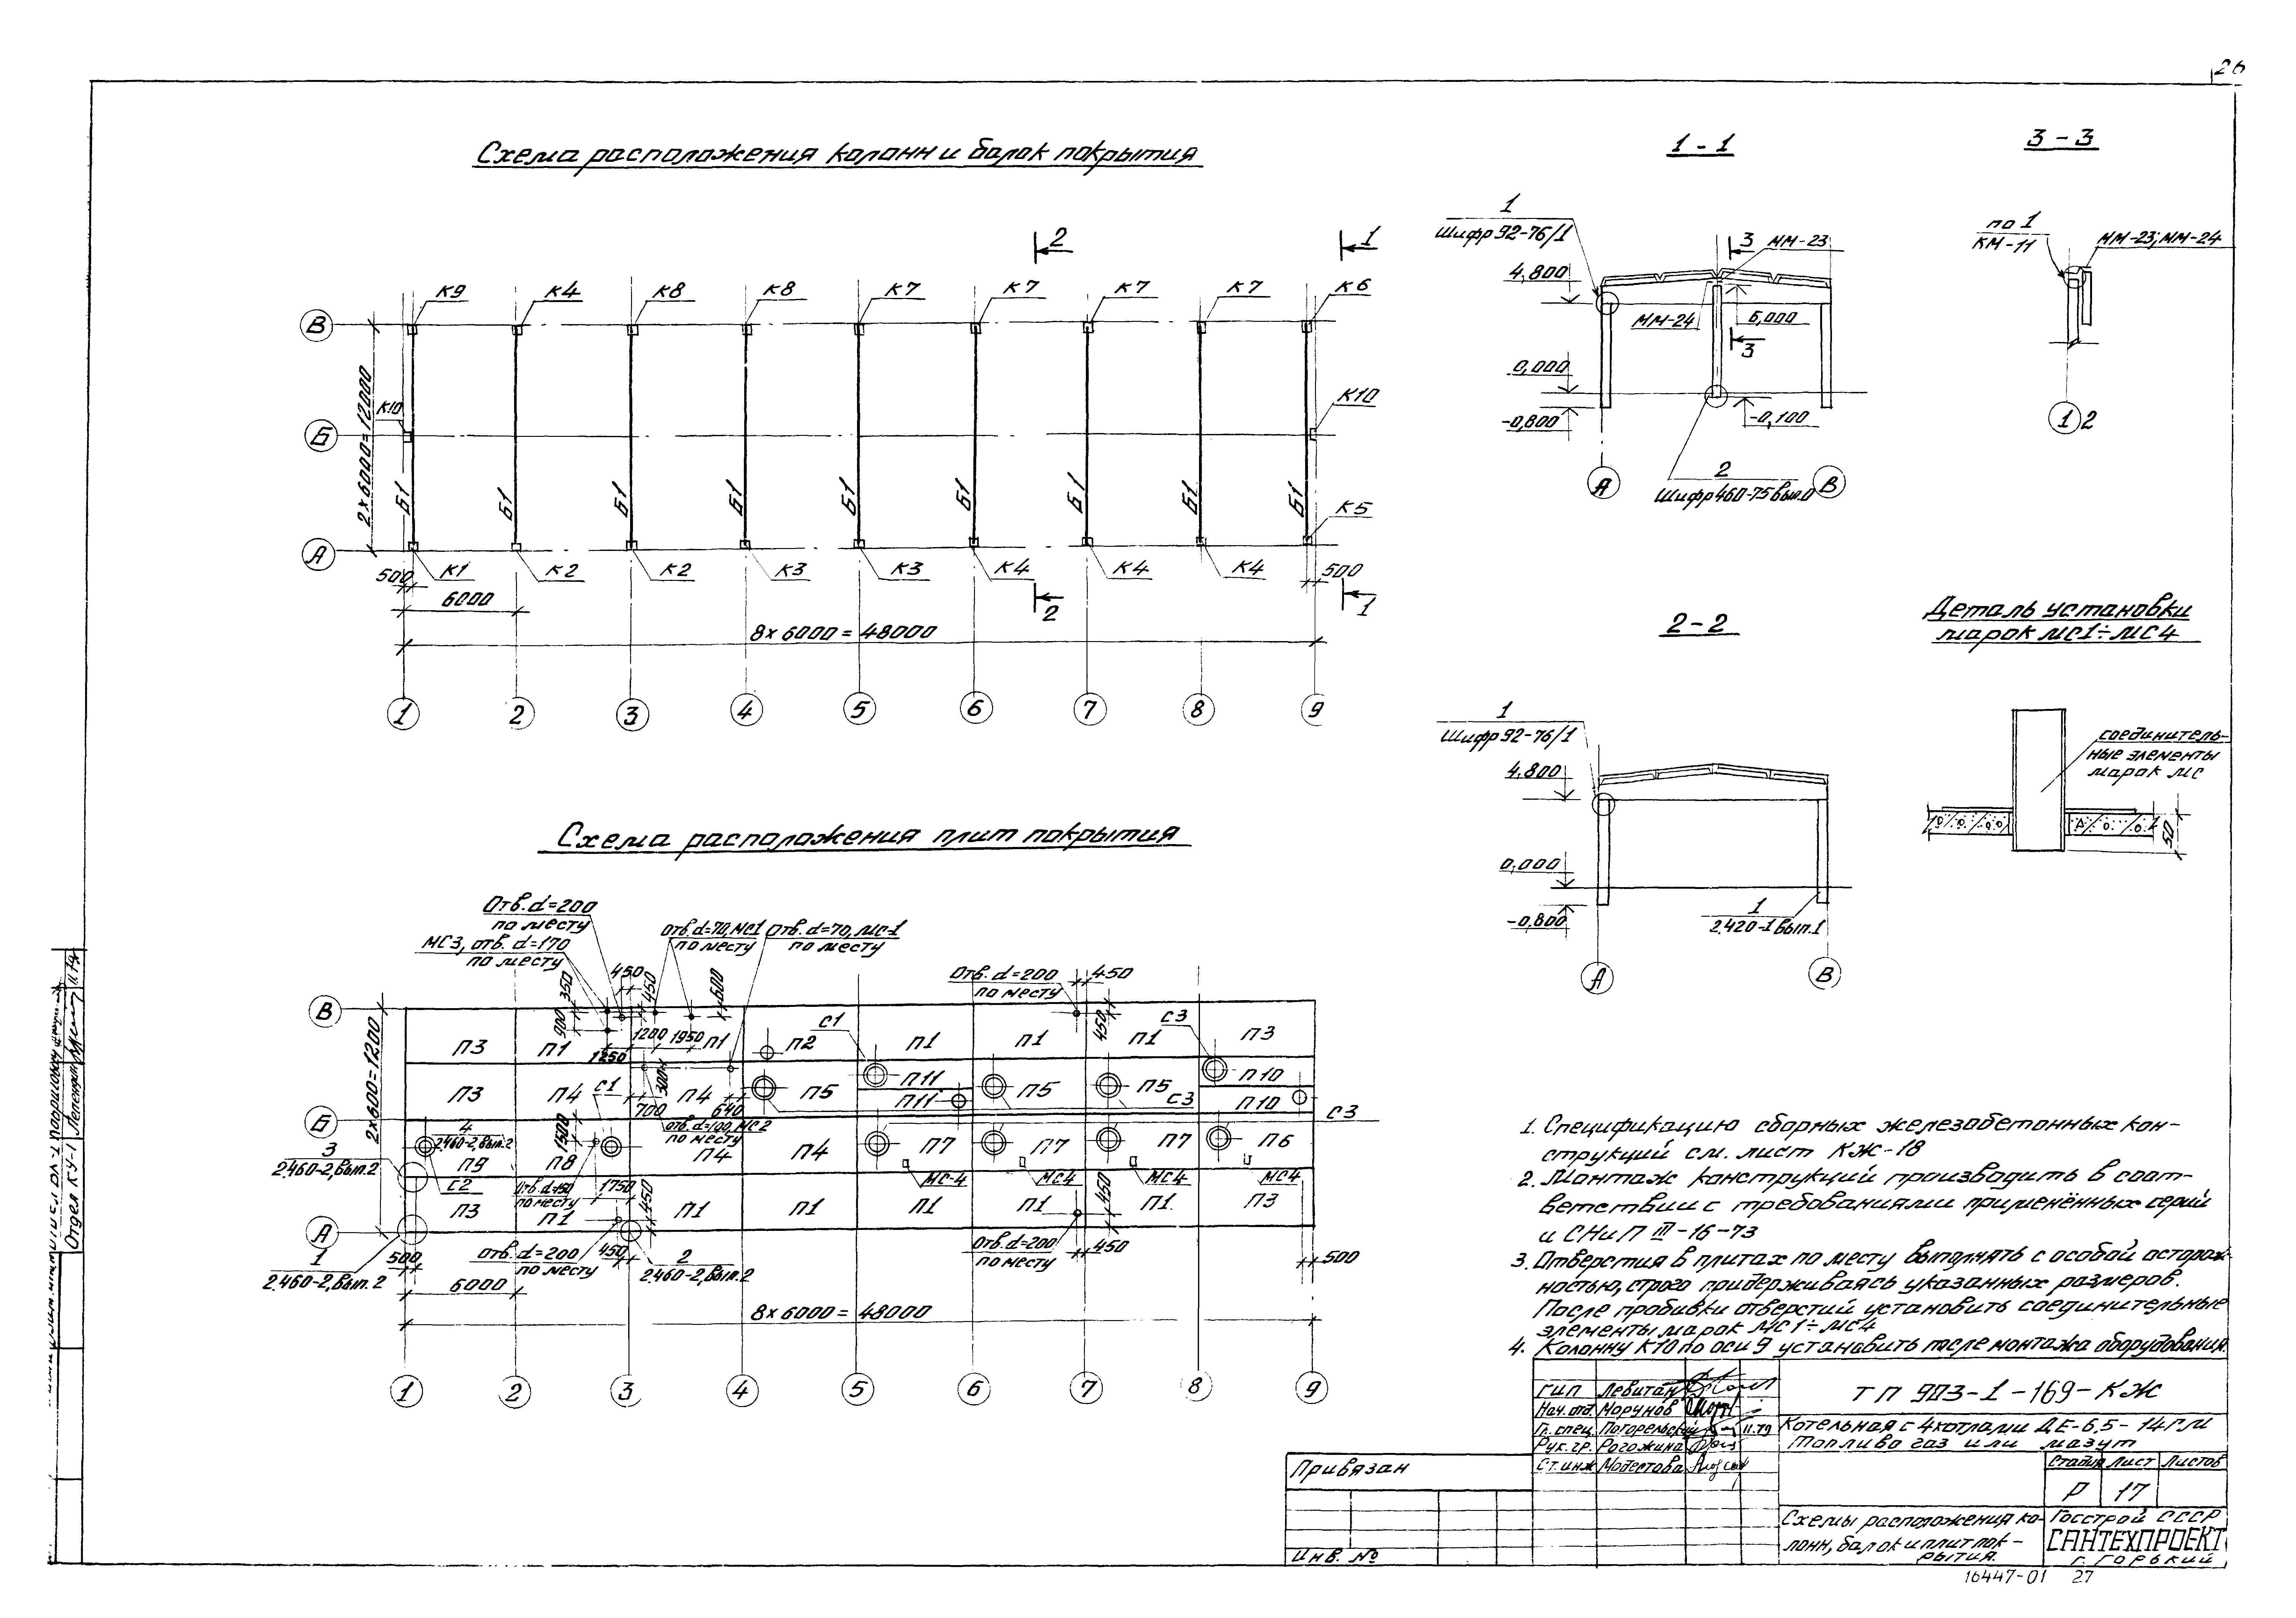 26
Схема расположения колонн и балок покрытия
1 - 1
3 - 3
2
1
К9
К4
К8
К8
К7
К7
К7
К7
К6
В
Б
А
2×6000=12000
К10
К10
Б1
Б1
Б1
Б1
Б1
Б1
Б1
Б1
Б1
К5
К1
К2
К2
К3
К3
К4
К4
К4
500
500
6000
2
1
8×6000=48000
1
2
3
4
5
6
7
8
9
1
Шифр 92-76/1
3
ММ-23
4,800
ММ-24
6,000
3
0,000
-0,800
-0,100
2
Шифр 460-75 вып.0
А
В
по 1
КМ-11
ММ-23; ММ-24
1
2
2-2
1
Шифр 92-76/1
4,800
0,000
-0,800
1
2.420-1 вып.1
А
В
Деталь установки
марок МС1÷МС4
соединитель-
ные элементы
марок МС
50
Схема расположения плит покрытия
Отв. d=200
по месту
МС3, отв. d=170
по месту
отв. d=70, МС1
по месту
Отв. d=70, МС-1
по месту
Отв. d=200
по месту
450
350
900
450
450
600
450
1200
1950
1250
В
Б
А
2×600=1200
П3
П1
П1
П2
С1
П1
П1
П1
С3
П3
П3
П4
С1
П4
П5
П11
П11
П5
П5
С3
П10
П10
С3
300
700
640
отв. d=100, МС2
по месту
4
2.460-2, вып.2
3
2.460-2, вып.2
П9
С2
П8
1500
П4
П4
П7
П7
П7
П6
МС-4
МС4
МС4
МС4
Отв. d=150
по месту
1750
450
П3
П1
П1
П1
П1
П1
П1
П3
450
1
2.460-2, вып. 2
500
отв. d=200
по месту
450
2
2.460-2, вып.2
Отв. d=200
по месту
450
500
6000
8×6000=48000
1
2
3
4
5
6
7
8
9
1. Спецификацию сборных железобетонных кон-
струкций см. лист КЖ-18
2. Монтаж конструкций производить в соот-
ветствии с требованиями применённых серий
и СНиП III-16-73
3. Отверстия в плитах по месту выполнять с особой осторож-
ностью, строго придерживаясь указанных размеров.
После пробивки отверстий установить соединительные
элементы марок МС1÷МС4
4. Колонну К10 по оси 9 установить после монтажа оборудования.
ГИП Левитан
Нач. отд. Морунов
Гл. спец. Погорельский 11.79
Рук. гр. Рогожина
Ст. инж Модестова
ТП 903-1-169-КЖ
Котельная с 4 котлами ДЕ-6,5-14ГМ
Топливо газ или мазут
Стадия Лист Листов
Р 17
Схемы расположения ко-
лонн, балок и плит пок-
рытия.
Госстрой СССР
САНТЕХПРОЕКТ
г. Горький
Привязан
Инв. №
16447-01 27
Отдел КУ-1